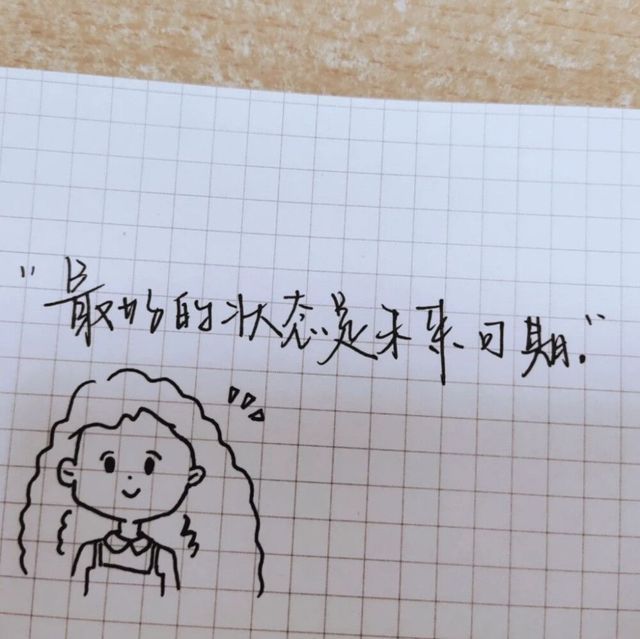 “最好的状态是未来可期.”